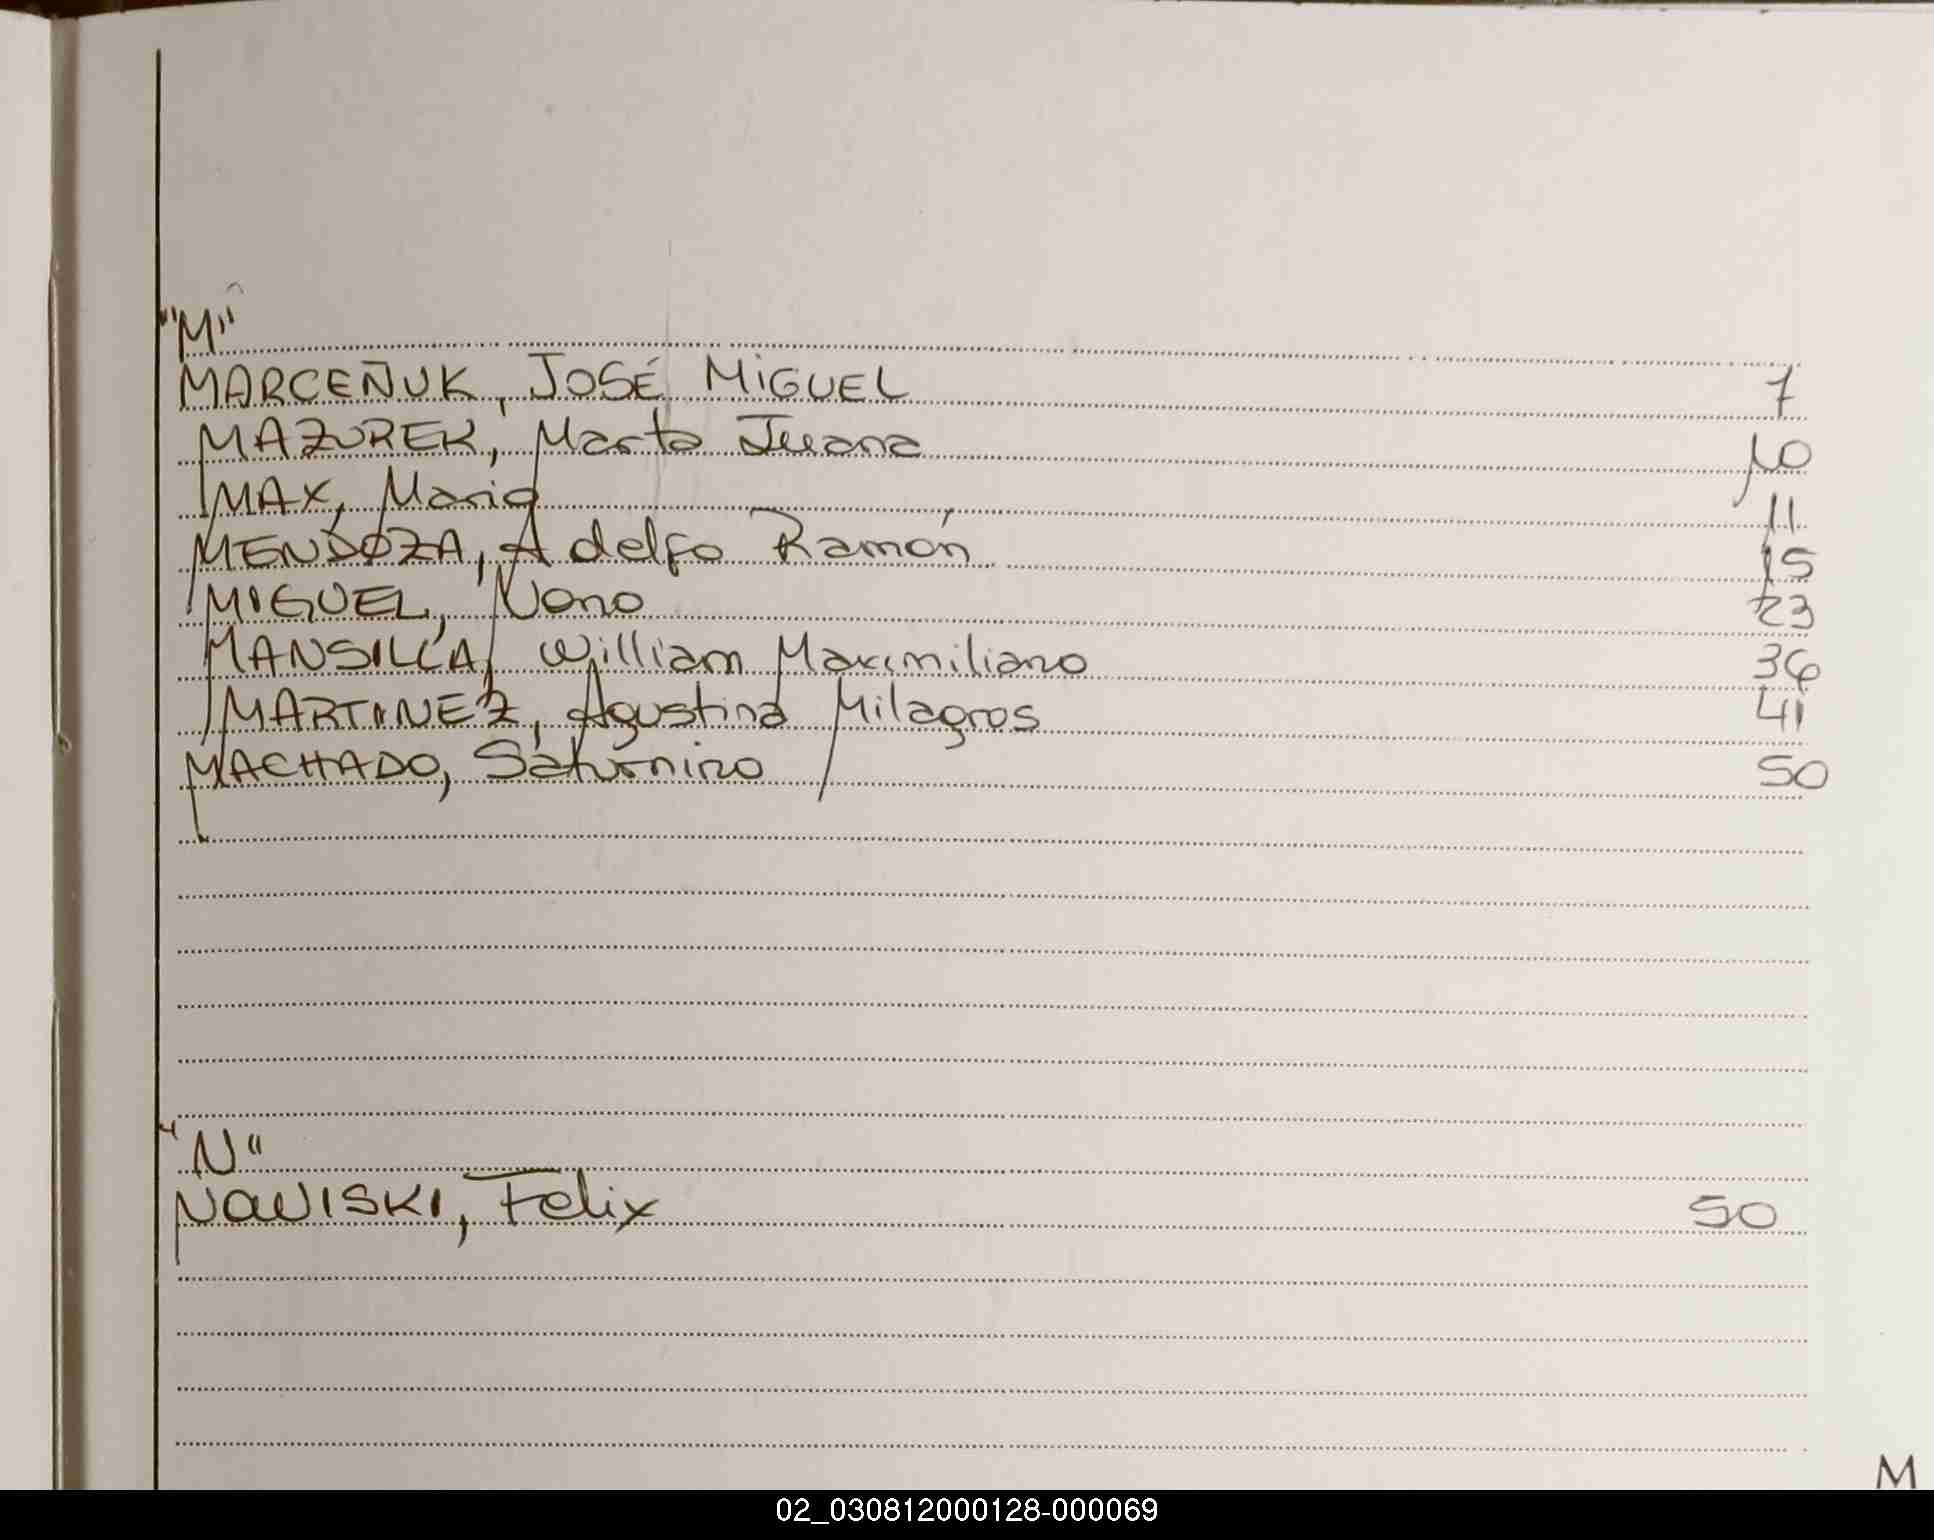 "M"
MARCEÑUK, JOSÉ MIGUEL 7
MAZUREK, Marta Juana 10
MAX, Mario 11
MENDOZA, Adelfo Ramón 15
MIGUEL, Nono 23
MANSILLA, William Maximiliano 36
MARTINEZ, Agustina Milagros 41
MACHADO, Saturnino 50
"N"
NOWISKI, Felix 50
M
02_030812000128-000069